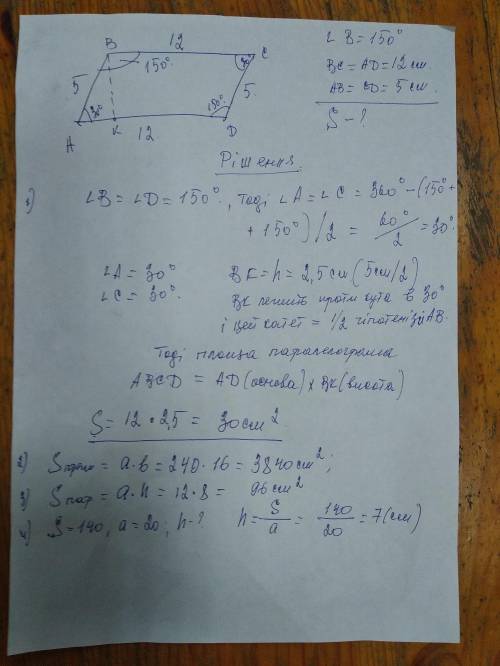 B 12 C ∠B = 150°
150° 30° BC = AD = 12 см.
5 5. AB = CD = 5 см.
30° 150° S - ?
A K 12 D
Рішення.
1) ∠B = ∠D = 150°, тоді ∠A = ∠C = 360° - (150° +
+ 150°)/2 = 60°/2 = 30°
∠A = 30° BK = h = 2,5 см (5 см/2)
∠C = 30° BK лежить проти кута в 30°
і цей катет = 1/2 гіпотенузи AB.
Тоді площа паралелограма
ABCD = AD (основа) × BK (висота)
S = 12 · 2,5 = 30 см²
2) Sпрям = a · b = 240 · 16 = 3840 см²;
3) Sпар = a · h = 12 · 8 = 96 см²
4) S = 140, a = 20; h - ? h = S/a = 140/20 = 7 (см)